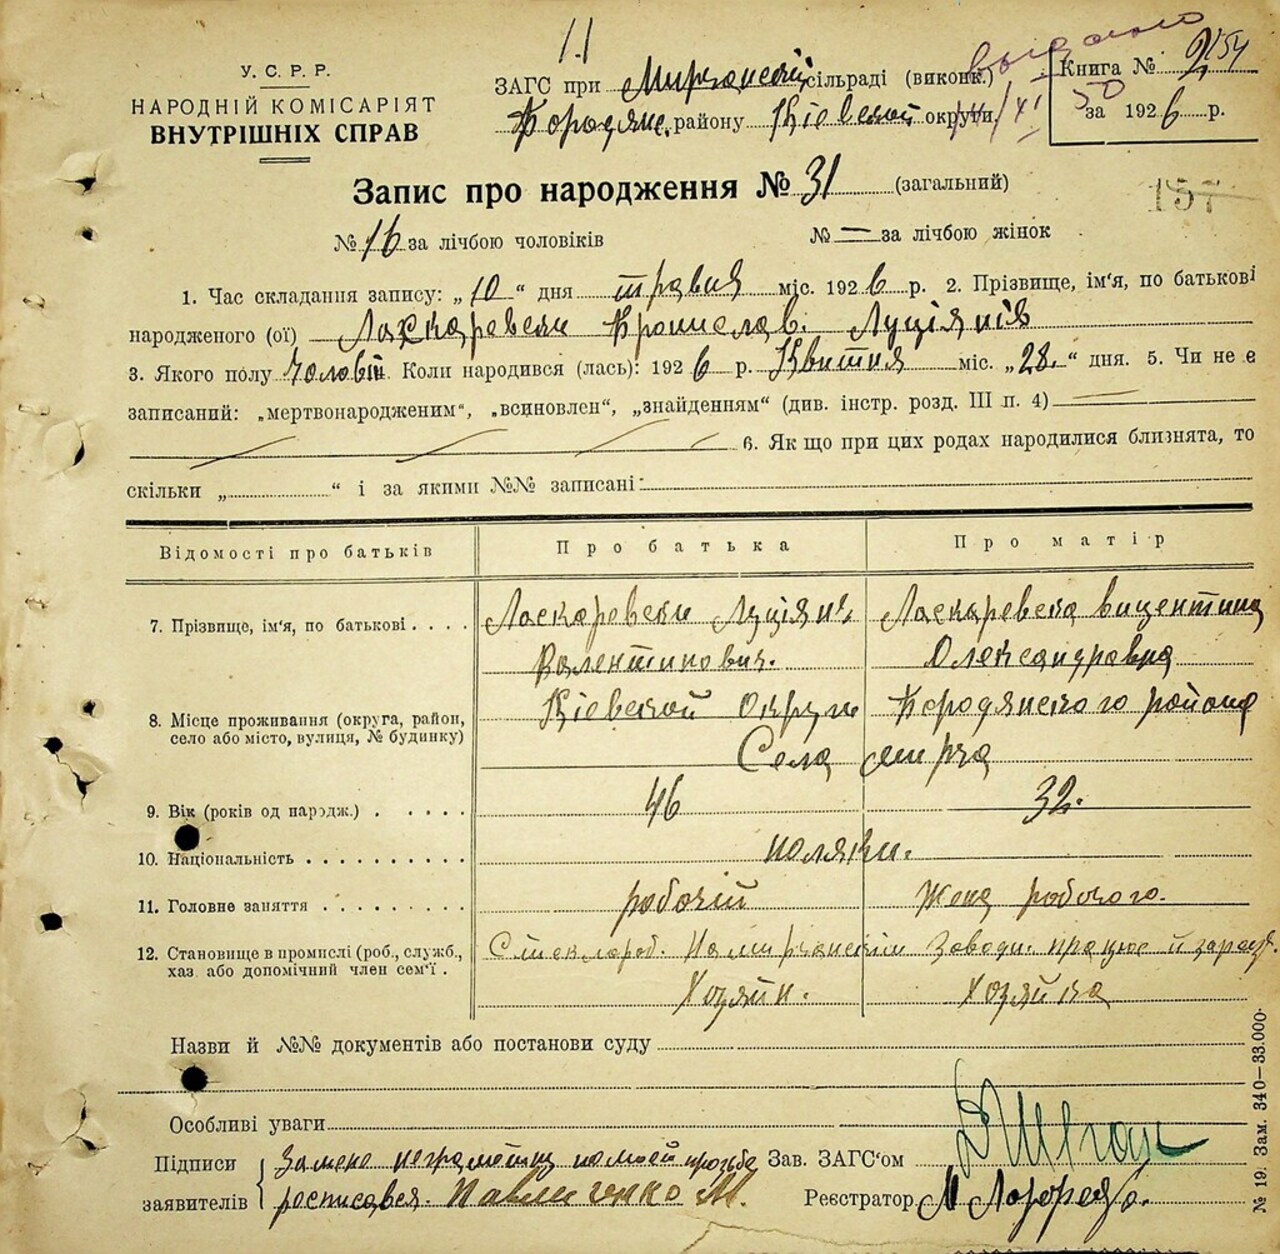 11
У. С. Р. Р.
НАРОДНІЙ КОМІСАРІЯТ
ВНУТРІШНІХ СПРАВ
ЗАГС при Мирчанскій сільраді (виконк.)
Бородянс. району Кіевской округи.
Книга № 2
за 1926 р.
154
Запис про народження № 31 (загальний)
157
№ 16 за лічбою чоловіків № — за лічбою жінок
1. Час складання запису: „10“ дня травня міс. 1926 р. 2. Прізвище, ім'я, по батькові
народженого (ої) Ласкаревски Бронислав. Луціянів
3. Якого полу чоловій. Коли народився (лась): 1926 р. Квитня міс. „28.“ дня. 5. Чи не є
записаний: „мертвонародженим“, „всиновлен“, „знайденням“ (див. інстр. розд. III п. 4)
6. Як що при цих родах народилися близнята, то
скільки „ “ і за якими №№ записані:
Відомості про батьків Про батька Про матір
7. Прізвище, ім'я, по батькові . . . . Ласкаревски Луціян Ласкаревска Вицентина
Валентинович. Олександровна
8. Місце проживання (округа, район, село або місто, вулиця, № будинку) Кіевской Округи Бородянского района
Села мирча
9. Вік (років од народж.) . . . . . 46 32.
10. Національність . . . . . . . . . . поляки.
11. Головне заняття . . . . . . . . . робочій Жена робочого.
12. Становище в промислі (роб., служб., хаз. або допомічний член сем'ї . На мирчанскім Заводи. працює й зараз.
Хозяйн. Хозяйка
Назви й №№ документів або постанови суду
Особливі уваги
Підписи заявителів
Замене неграмотни по моей прозьбе
росписався. Павличенко М.
Зав. ЗАГС'ом
Реєстратор М
№ 19. Зам. 340—33.000.